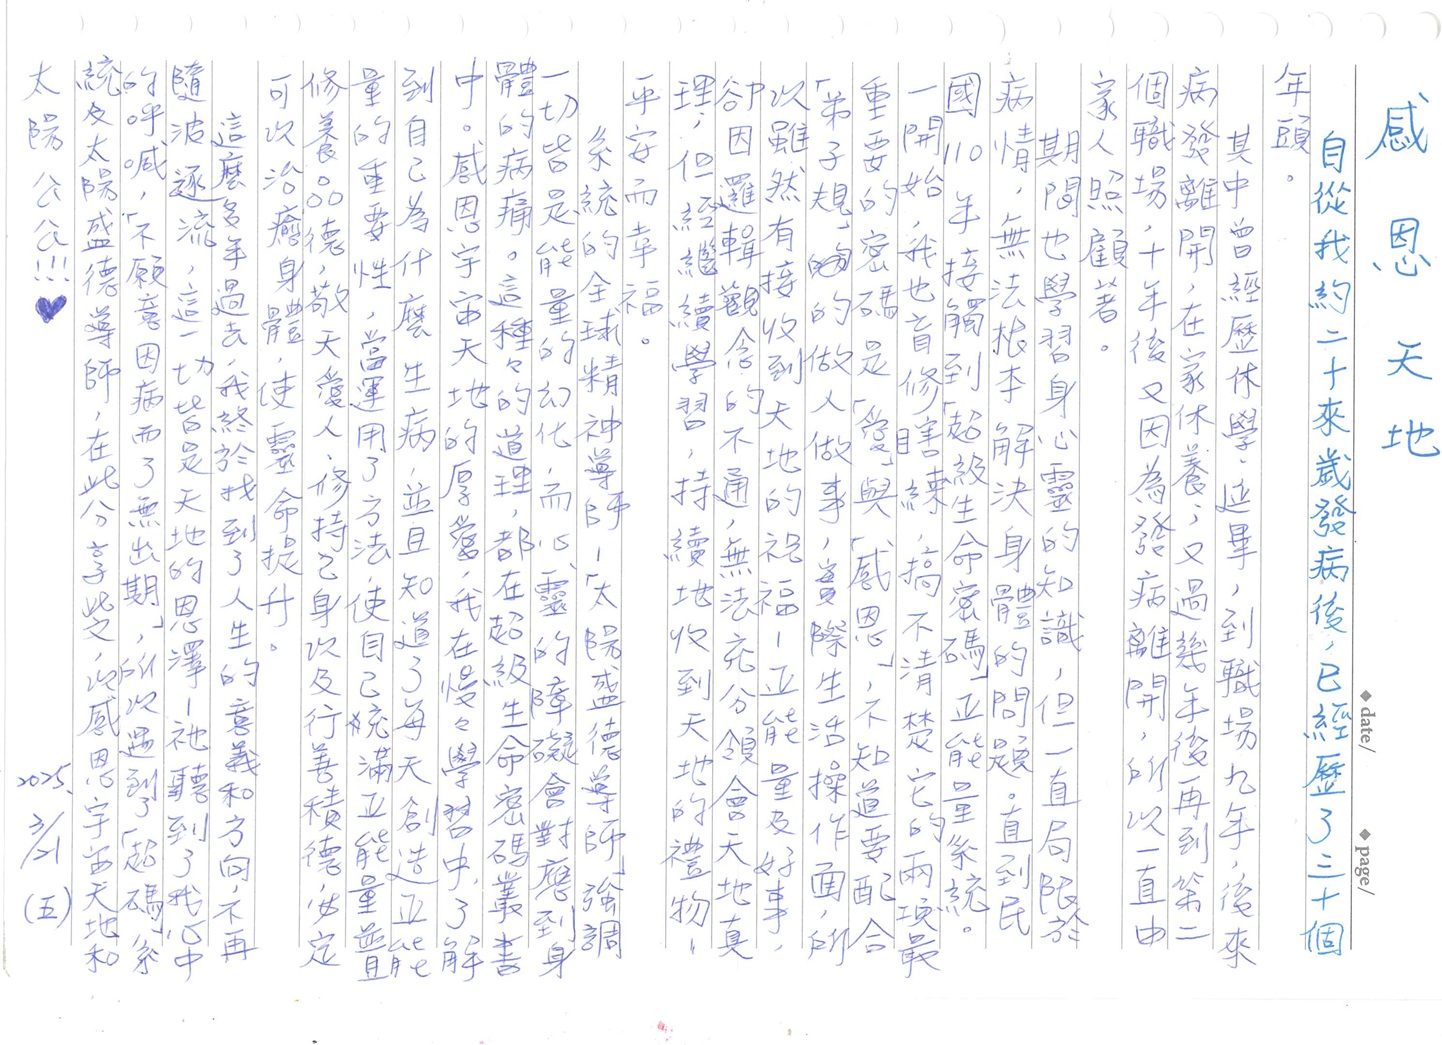 感恩天地
自從我約二十來歲發病後，已經歷了三十個
年頭。
其中曾經歷休學、延畢，到職場九年，後來
病發離開，在家休養；又過幾年後再到第二
個職場，十年後又因為發病離開，所以一直由
家人照顧著。
期間也學習身心靈的知識，但一直局限於
病情，無法根本解決身體的問題。直到民
國110年接觸到「超級生命密碼」正能量系統。
一開始，我也盲修瞎練，搞不清楚它的兩項最
重要的密碼是「愛」與「感恩」，不知道要配合
「弟子規」的做人做事，實際生活操作面，所
以雖然有接收到天地的祝福－正能量及好事，
卻因邏輯觀念的不通，無法充分領會天地真
理，但經繼續學習，持續地收到天地的禮物－
平安而幸福。
系統的全球精神導師－「太陽盛德導師」強調
一切皆是能量的幻化，而心靈的障礙會對應到身
體的病痛。這種々的道理，都在超級生命密碼叢書
中。感恩宇宙天地的厚愛，我在慢々學習中，了解
到自己為什麼生病，並且知道了每天創造正能
量的重要性，當運用了方法，使自己充滿正能量並且
修養品德，敬天愛人、修持己身以及行善積德，必定
可以治癒身體，使靈命提升。
這麼多年過去，我終於找到了人生的意義和方向，不再
隨波逐流，這一切皆是天地的恩澤－祂聽到了我心中
的呼喊，「不願意因病而了無出期」，所以遇到了「超碼」系
統及太陽盛德導師，在此分享此文，以感恩宇宙天地和
太陽公公!!!♥
2025.
3/21
(五)
◆ date/
◆ page/